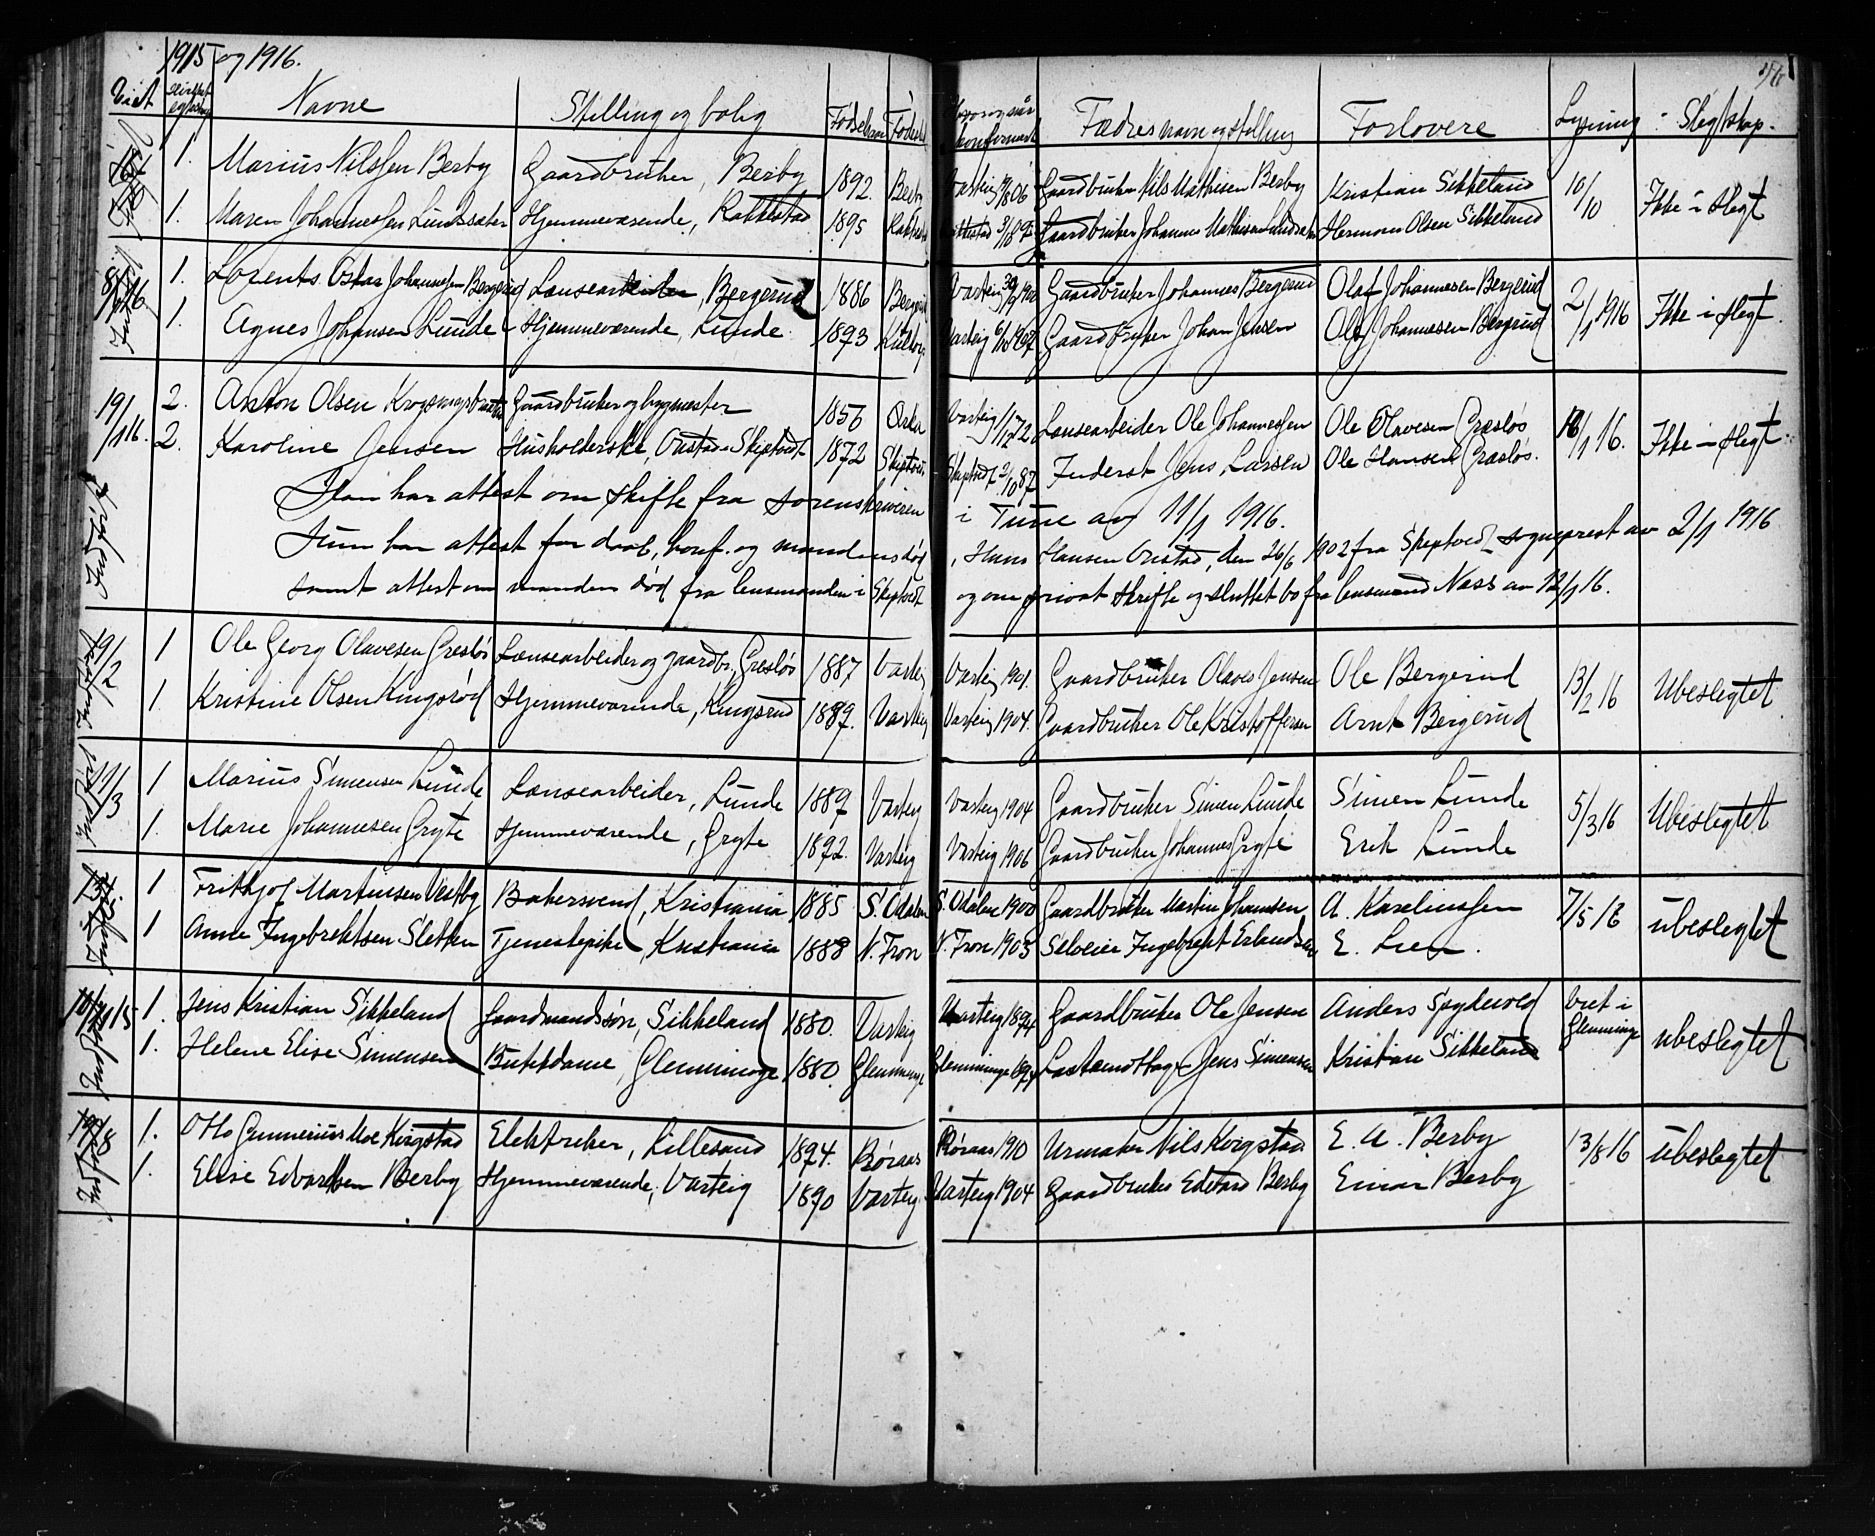 1915 og 1916.
46
Viet Navne Stilling og bolig Fødselsaar Fødested Hvor og naar konfirmert Fædres navn og stilling Forlovere Lysning Slegtskap.
1. Marius Nilssen Berby Gaardbruker, Berby 1892. Berby Varteig 1906 Gaardbruker Nils Mathisen Berby Kristian Sikkeland 10/10 Ikke i slegt
1. Maren Johannessen Lundsæter Hjemmeværende, Rakkestad 1895 Rakkestad Gaardbruker Johannes Mathisen Lundsæter Herman Olsen Sikkeland
8/1 16. 1. Lorents Oskar Johannessen Bergerud Lænsearbeider, Bergerud 1886 Bergerud Varteig Gaardbruker Johannes Bergerud Olaf Johannesen Bergerud 2/1 1916 Ikke i slegt.
1. Agnes Johansen Lunde Hjemmeværende, Lunde. 1893 Varteig Gaardbruker Johan Jensen Ole Johannesen Bergerud
19/1 16. 2. Anton Olsen Gaardbruker og bygmester 1856 Varteig 1/12 72 Lænsearbeider Ole Johannessen Ole Olavesen Græsløs 16/1 16. Ikke i slegt.
2. Karoline Jensen Husholderske, Onstad i Skiptvedt 1872 Skiptvedt Skiptvedt 2/10 87 Inderst Jens Larsen Ole Hansen Græsløs.
Han har attest om skifte fra sorenskriveren i Tune av 11/1 1916.
Hun har attest for daab, konf. og mandens død, Hans Hansen Onstad, den 26/6 1902 fra Skiptvedt sogneprest av 2/1 1916
samt attest om mandens død fra lensmanden i Skiptvedt og om privat skifte og sluttet bo fra lensmand Næss av 12/1 16.
19/2 1 Ole Georg Olavesen Gresløs Lænsearbeider og gaardbr., Gresløs 1887 Varteig Varteig 1901. Gaardbruker Olaves Jensen Ole Bergerud 13/2 16 Ubeslegtet
1. Kristine Olsen Kingsrød Hjemmeværende, Kingsrud 1889. Varteig Varteig 1904. Gaardbruker Ole Kristoffersen Arnt Bergerud
11/3 1 Marius Simensen Lunde Lænsearbeider, Lunde 1889 Varteig Varteig 1904 Gaardbruker Simen Lunde Simen Lunde 5/3 16 Ubeslegtet
1. Marie Johannesen Gryte Hjemmeværende, Gryte 1892. Varteig Varteig 1906 Gaardbruker Johannes Gryte Erik Lunde
1 Frithjof Martinsen Vestby Bakersvend, Kristiania 1885 S. Odalen S. Odalen 1900 Gaardbruker Martin Johansen A. Karelinssen 7/5 16 ubeslegtet
1 Anne Ingebrektsen Sletten Tjenestepike, Kristiania 1888 N. Fron N. Fron 1903 Selveier Ingebrekt Erlandsen E. Lien.
1. Jens Kristian Sikkeland Gaardmandssøn, Sikkeland 1880. Varteig Varteig 1894 Gaardbruker Ole Jensen Anders Spydevold Viet i Glemminge ubeslegtet
1. Helene Elise Simensen Butikdame, Glemminge 1880. Glemminge Glemminge 1894 Jens Simensen Kristian Sikkeland
1. Otto Gunnerius Moe Kvigstad Elektriker, Lillesand 1894. Røraas Røraas 1910 Urmaker Nils Kvigstad E. A. Berby 13/8 16 ubeslegtet
1. Elise Edvardsen Berby Hjemmeværende, Varteig 1890 Varteig Varteig 1904 Gaardbruker Edvard Berby Einar Berby